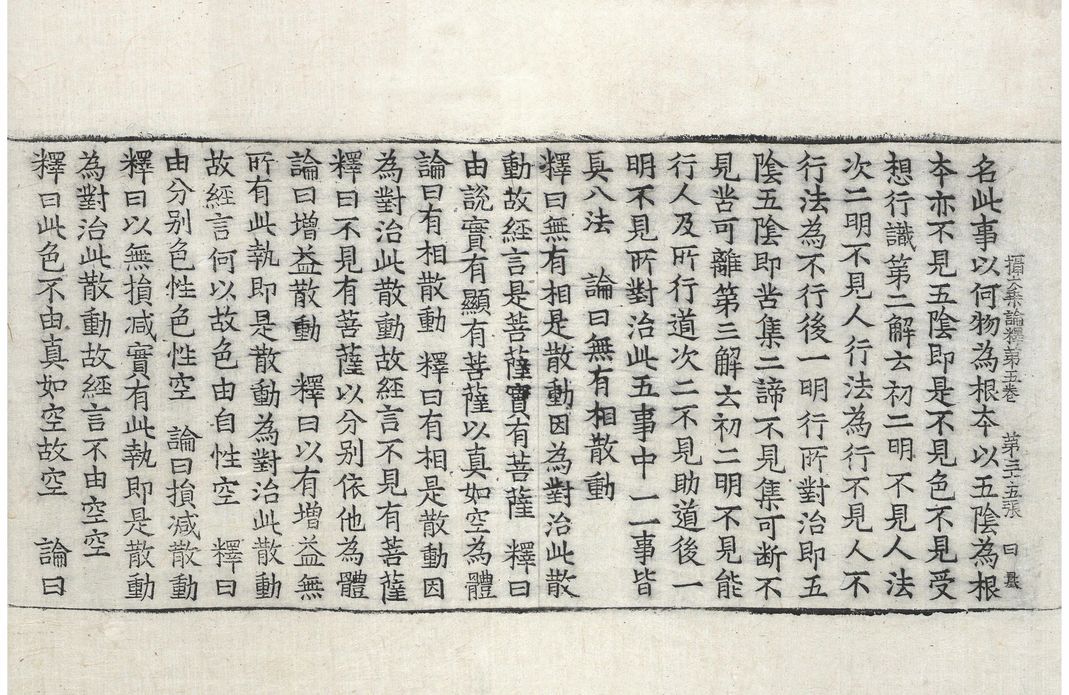 攝大乘論釋第五卷 第三十五張 日
名此事以何物為根夲以五陰為根
夲亦不見五陰即是不見色不見受
想行識第二解云初二明不見人法
次二明不見人行法為行不見人不
行法為不行後一明行所對治即五
陰五陰即苦集二諦不見集可断不
見苦可離第三解云初二明不見能
行人及所行道次二不見助道後一
明不見所對治此五事中一一事皆
具八法 論曰無有相散動
釋曰無有相是散動因為對治此散
動故經言是菩薩實有菩薩 釋曰
由說實有顯有菩薩以真如空為體
論曰有相散動 釋曰有相是散動因
為對治此散動故經言不見有菩薩
釋曰不見有菩薩以分別依他為體
論曰增益散動 釋曰以有增益無
所有此執即是散動為對治此散動
故經言何以故色由自性空 釋曰
由分別色性色性空 論曰損減散動
釋曰以無損减實有此執即是散動
為對治此散動故經言不由空空
釋曰此色不由真如空故空 論曰